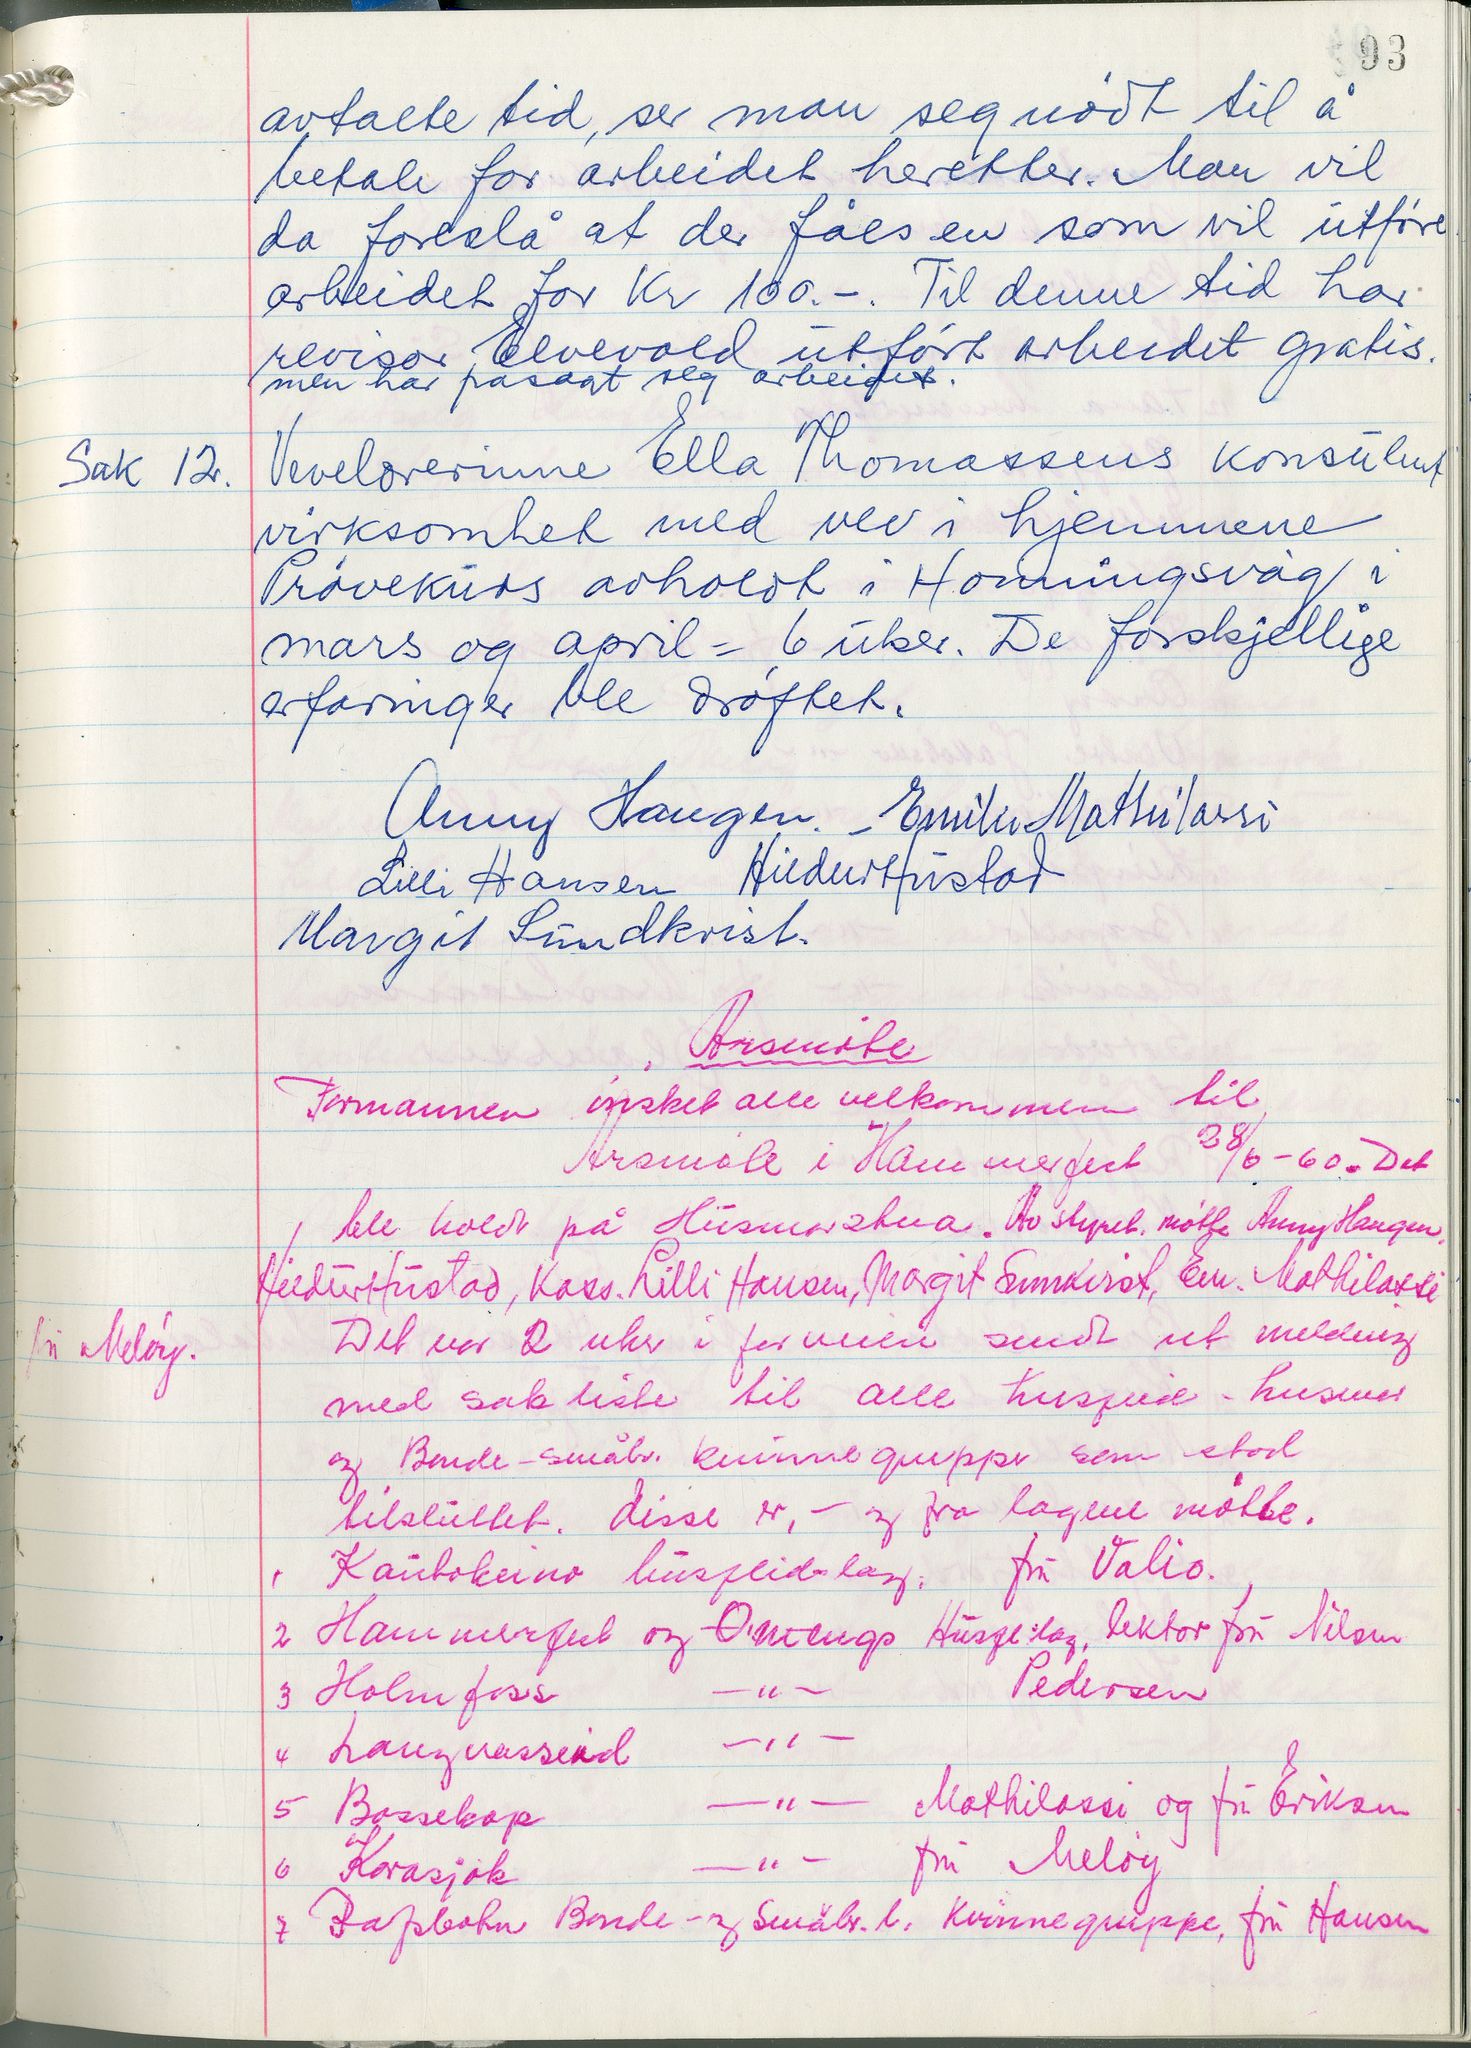 93
avtalte tid, ser man seg nödt til å
betale for arbeidet heretter. Man vil
da foreslå at der fåes en som vil utföre
arbeidet for Kr 100.-. Til denne tid har
revisor Elvevold utfört arbeidet gratis.
men har påsagt seg arbeidet.
Sak 12. Vevelærerinne Ella Thomassens konsulent
virksomhet med vev i hjemmene
Prövekurs avholdt i Honningsvåg i
mars og april = 6 uker. De forskjellige
erfaringer ble dröftet.
Anny Haugen. - Emilie Mathilassi
Lilli Hansen Hildur Hustad
Margit Sundkvist.
Årsmöte
Formannen önsket alle velkommen til
Årsmöte i Hammerfest 28/6-60. Det
ble holdt på Husmorstua. Av styret mötte Anny Haugen,
Hildur Hustad, Kass. Lilli Hansen, Margit Sunkvist, Em. Mathilassi
fru Melöy.
Det var 2 uker i forveien sendt ut melding
med sakliste til alle husflid - husmor
og Bonde-småbr. kvinnegrupper som stod
tilsluttet. Disse er, - og fra lagene mötte.
1 Kautokeino husflidslag. fru Valio.
2 Hammerfest og Omengs Husfl.lag, lektor fru Nilsen
3 Holmfoss -"- Pedersen
4 Langnesseid -"-
5 Bossekop -"- Mathilassi og fru Eriksen
6 Karasjok -"- fru Melöy
7 Rafsbotn Bonde- og Småbr.l. Kvinnegruppe, fru Hansen